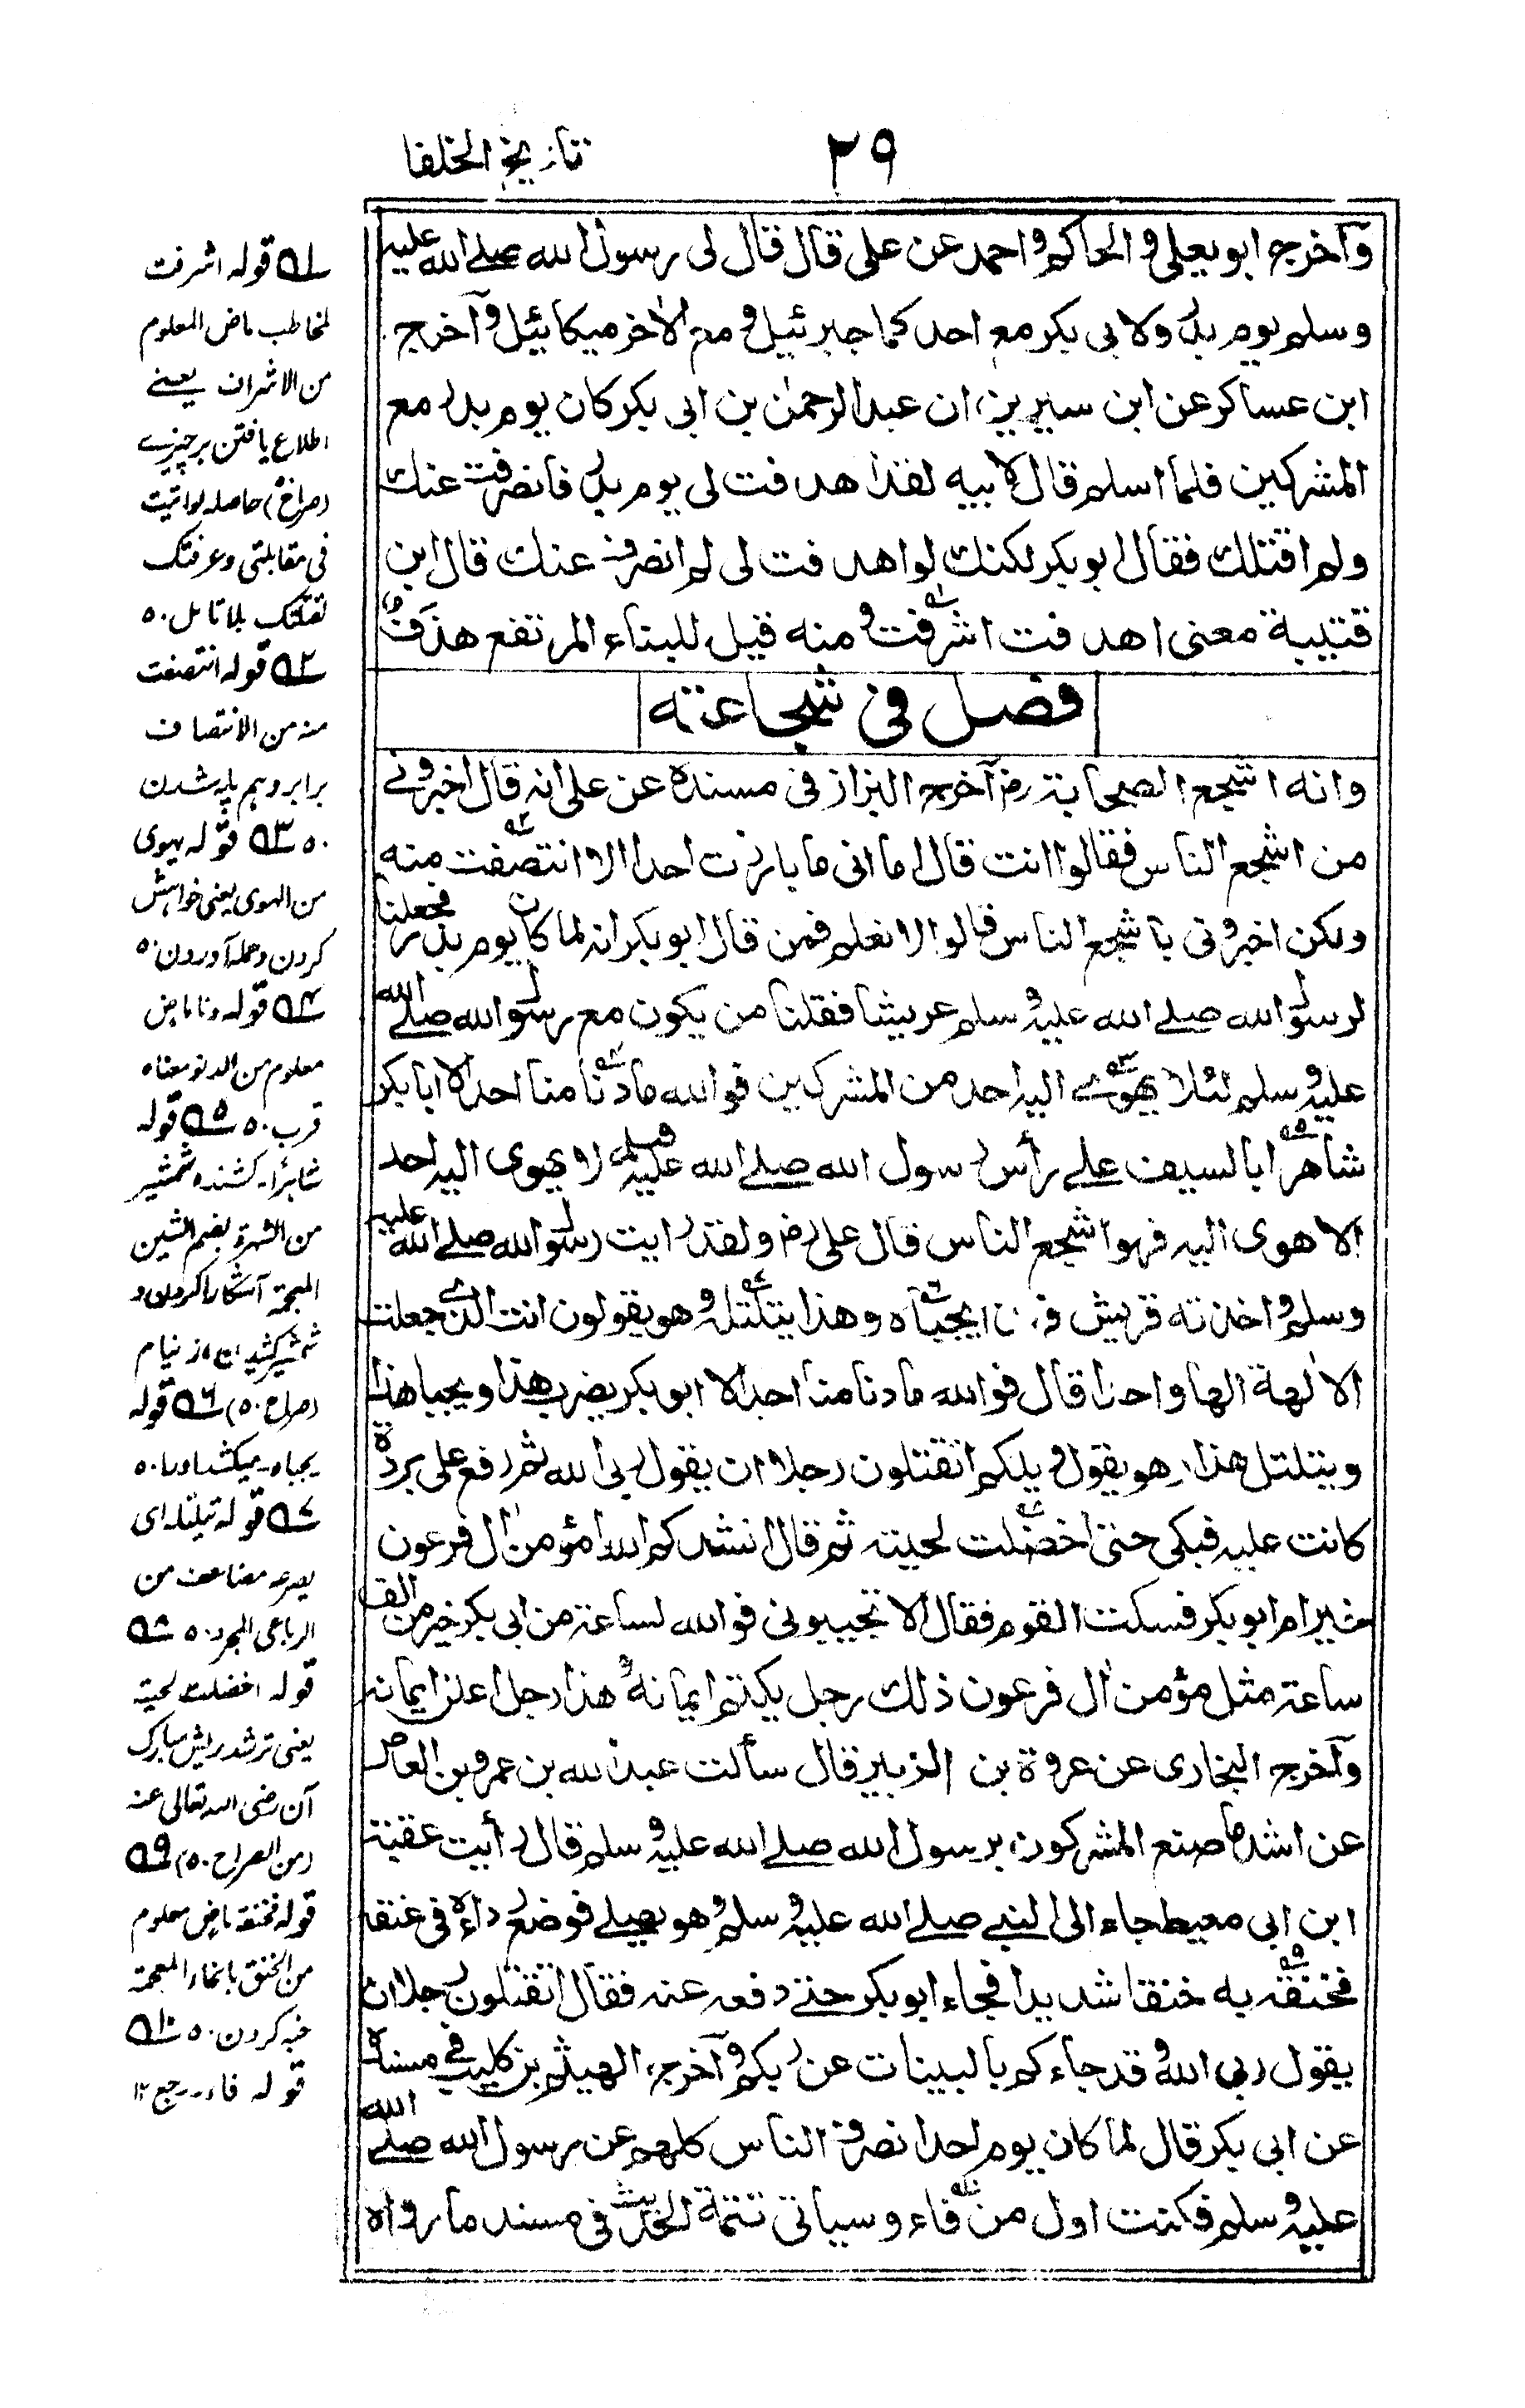 ٢٩
تاريخ الخلفا
وآخرج ابو يعلى و الحاكم و احمد عن على قال قال لى رسول الله صلے الله عليه
وسلم يوم بدر ولابى بكر مع احدكما جبرئيل و مع الاٰخر ميكائيل وآخرج
ابن عساكر عن ابن سيرين ان عبد الرحمٰن بن ابى بكر كان يوم بدر مع
المشركين فلما اسلم قال لابيه لقد اهدفت لى يوم بدر فانصرفت عنك
ولم اقتلك فقال ابو بكر لكنك لو اهدفت لى لم انصرف عنك قال ابن
قتيبة معنى اهدفت اشرفت و منه قيل للبناء المرتفع هدف
فصل فى شجاعته
وانه اشجع الصحابة رض آخرج البزار فى مسنده عن على انه قال اخبرونے
من اشجع الناس فقالوا انت قال اما انى ما بارزت احدا الا انتصفت منه
ولكن اخبرونى باشجع الناس قالوا لا نعلم فمن قال ابو بكر انه لما كان يوم بدر فجعلنا
لرسول الله صلے الله عليه وسلم عريشا فقلنا من يكون مع رسول الله صلے الله
عليه وسلم لئلا يهوے اليه احد من المشركين فوالله ما دنا منا احد الا ابا بكر
شاهرا بالسيف علے رأس رسول الله صلے الله عليه وسلم لا يهوى اليه احد
الا هوى اليه فهو اشجع الناس قال على رض ولقد رايت رسول الله صلے الله عليه
وسلم واخذته قريش فهذا يجباه وهذا يتلتله وهو يقولون انت الذے جعلت
الاٰلهة الها واحدا قال فوالله ما دنا منا احد الا ابو بكر يضرب هذا ويجبا هذا
ويتلتل هذا وهو يقول ويلكم اتقتلون رجلا ان يقول ربى الله ثم رفع على بردة
كانت عليه فبكى حتى اخضلت لحيته ثم قال انشدكم الله امؤمن اٰل فرعون
خير ام ابو بكر فسكت القوم فقال الا تجيبونى فوالله لساعة من ابى بكر خير من الف
ساعة مثل مؤمن اٰل فرعون ذلك رجل يكتم ايمانه و هذا رجل اعلن ايمانه
وآخرج البخارى عن عروة بن الزبير قال سألت عبد الله بن عمرو بن العاص
عن اشد ما صنع المشركون برسول الله صلے الله عليه وسلم قال رأيت عقبة
ابن ابى معيط جاء الى النبے صلے الله عليه وسلم وهو يصلے فوضع رداءه فى عنقه
فخنقه به خنقا شديدا فجاء ابو بكر حتے دفعه عنه فقال اتقتلون رجلا ان
يقول ربى الله و قد جاءكم بالبينات من ربكم و آخرج الهيثم بن كليب فے مسنده
عن ابى بكر قال لما كان يوم احد انصرف الناس كلهم عن رسول الله صلے الله
عليه وسلم فكنت اول من فاء وسياتى تتمة الحديث فى مسند ما رواه
١ قوله اشرفت
مخاطب ماض المعلوم
من الاشراف يعنے
اطلاع يافتن بر چيزے
(صراح) حاصله لو اتيت
فى مقابلتى وعرفتك
لقتلتك بلا تامل ٥
٢ قوله انتصفت
منه من الانتصاف
برابر وهم پايه شدن
٥ ٣ قوله يهوى
من الهوى يعنى خواهش
كردن وحمله آوردن ٥
٤ قوله دنا ماض
معلوم من الدنو معناه
قرب ٥ ٥ قوله
شاهرًا كشنده شمشير
من الشهرة بضم الشين
المعجمة آشكارا كردن و
شمشير كشيدن از نيام
(صراح ٥) ٦ قوله
يجباه ميكشد اورا ٥
٧ قوله تيلتله اى
يصرعه مضاعف من
الرباعى المجرد ٥ ٨
قوله اخضلت لحيته
يعنى تر شد ريش مبارك
آن رضى الله تعالى عنه
(من الصراح ٥) ٩
قوله فخنقه ماض معلوم
من الخنق بالخاء المعجمة
خبه كردن ٥ ١٠
قوله فاء رجع ١٢